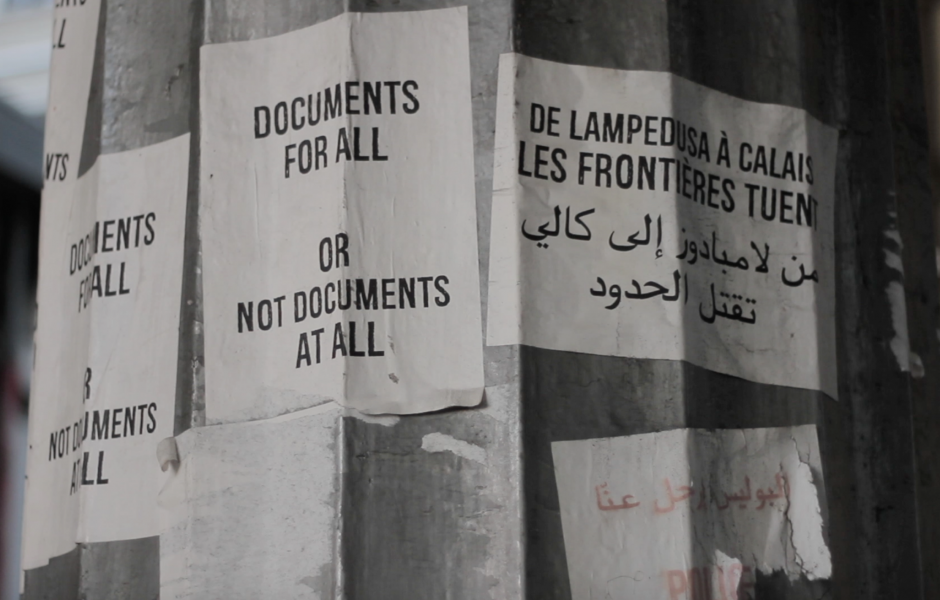 NTS
DOCUMENTS
FOR ALL
NOT DOCUMENTS
AT ALL
DOCUMENTS
FOR ALL
OR
NOT DOCUMENTS
AT ALL
DE LAMPEDUSA À CALAIS
LES FRONTIÈRES TUENT
من لامبادوز إلى كالي
تقتل الحدود
عنّا